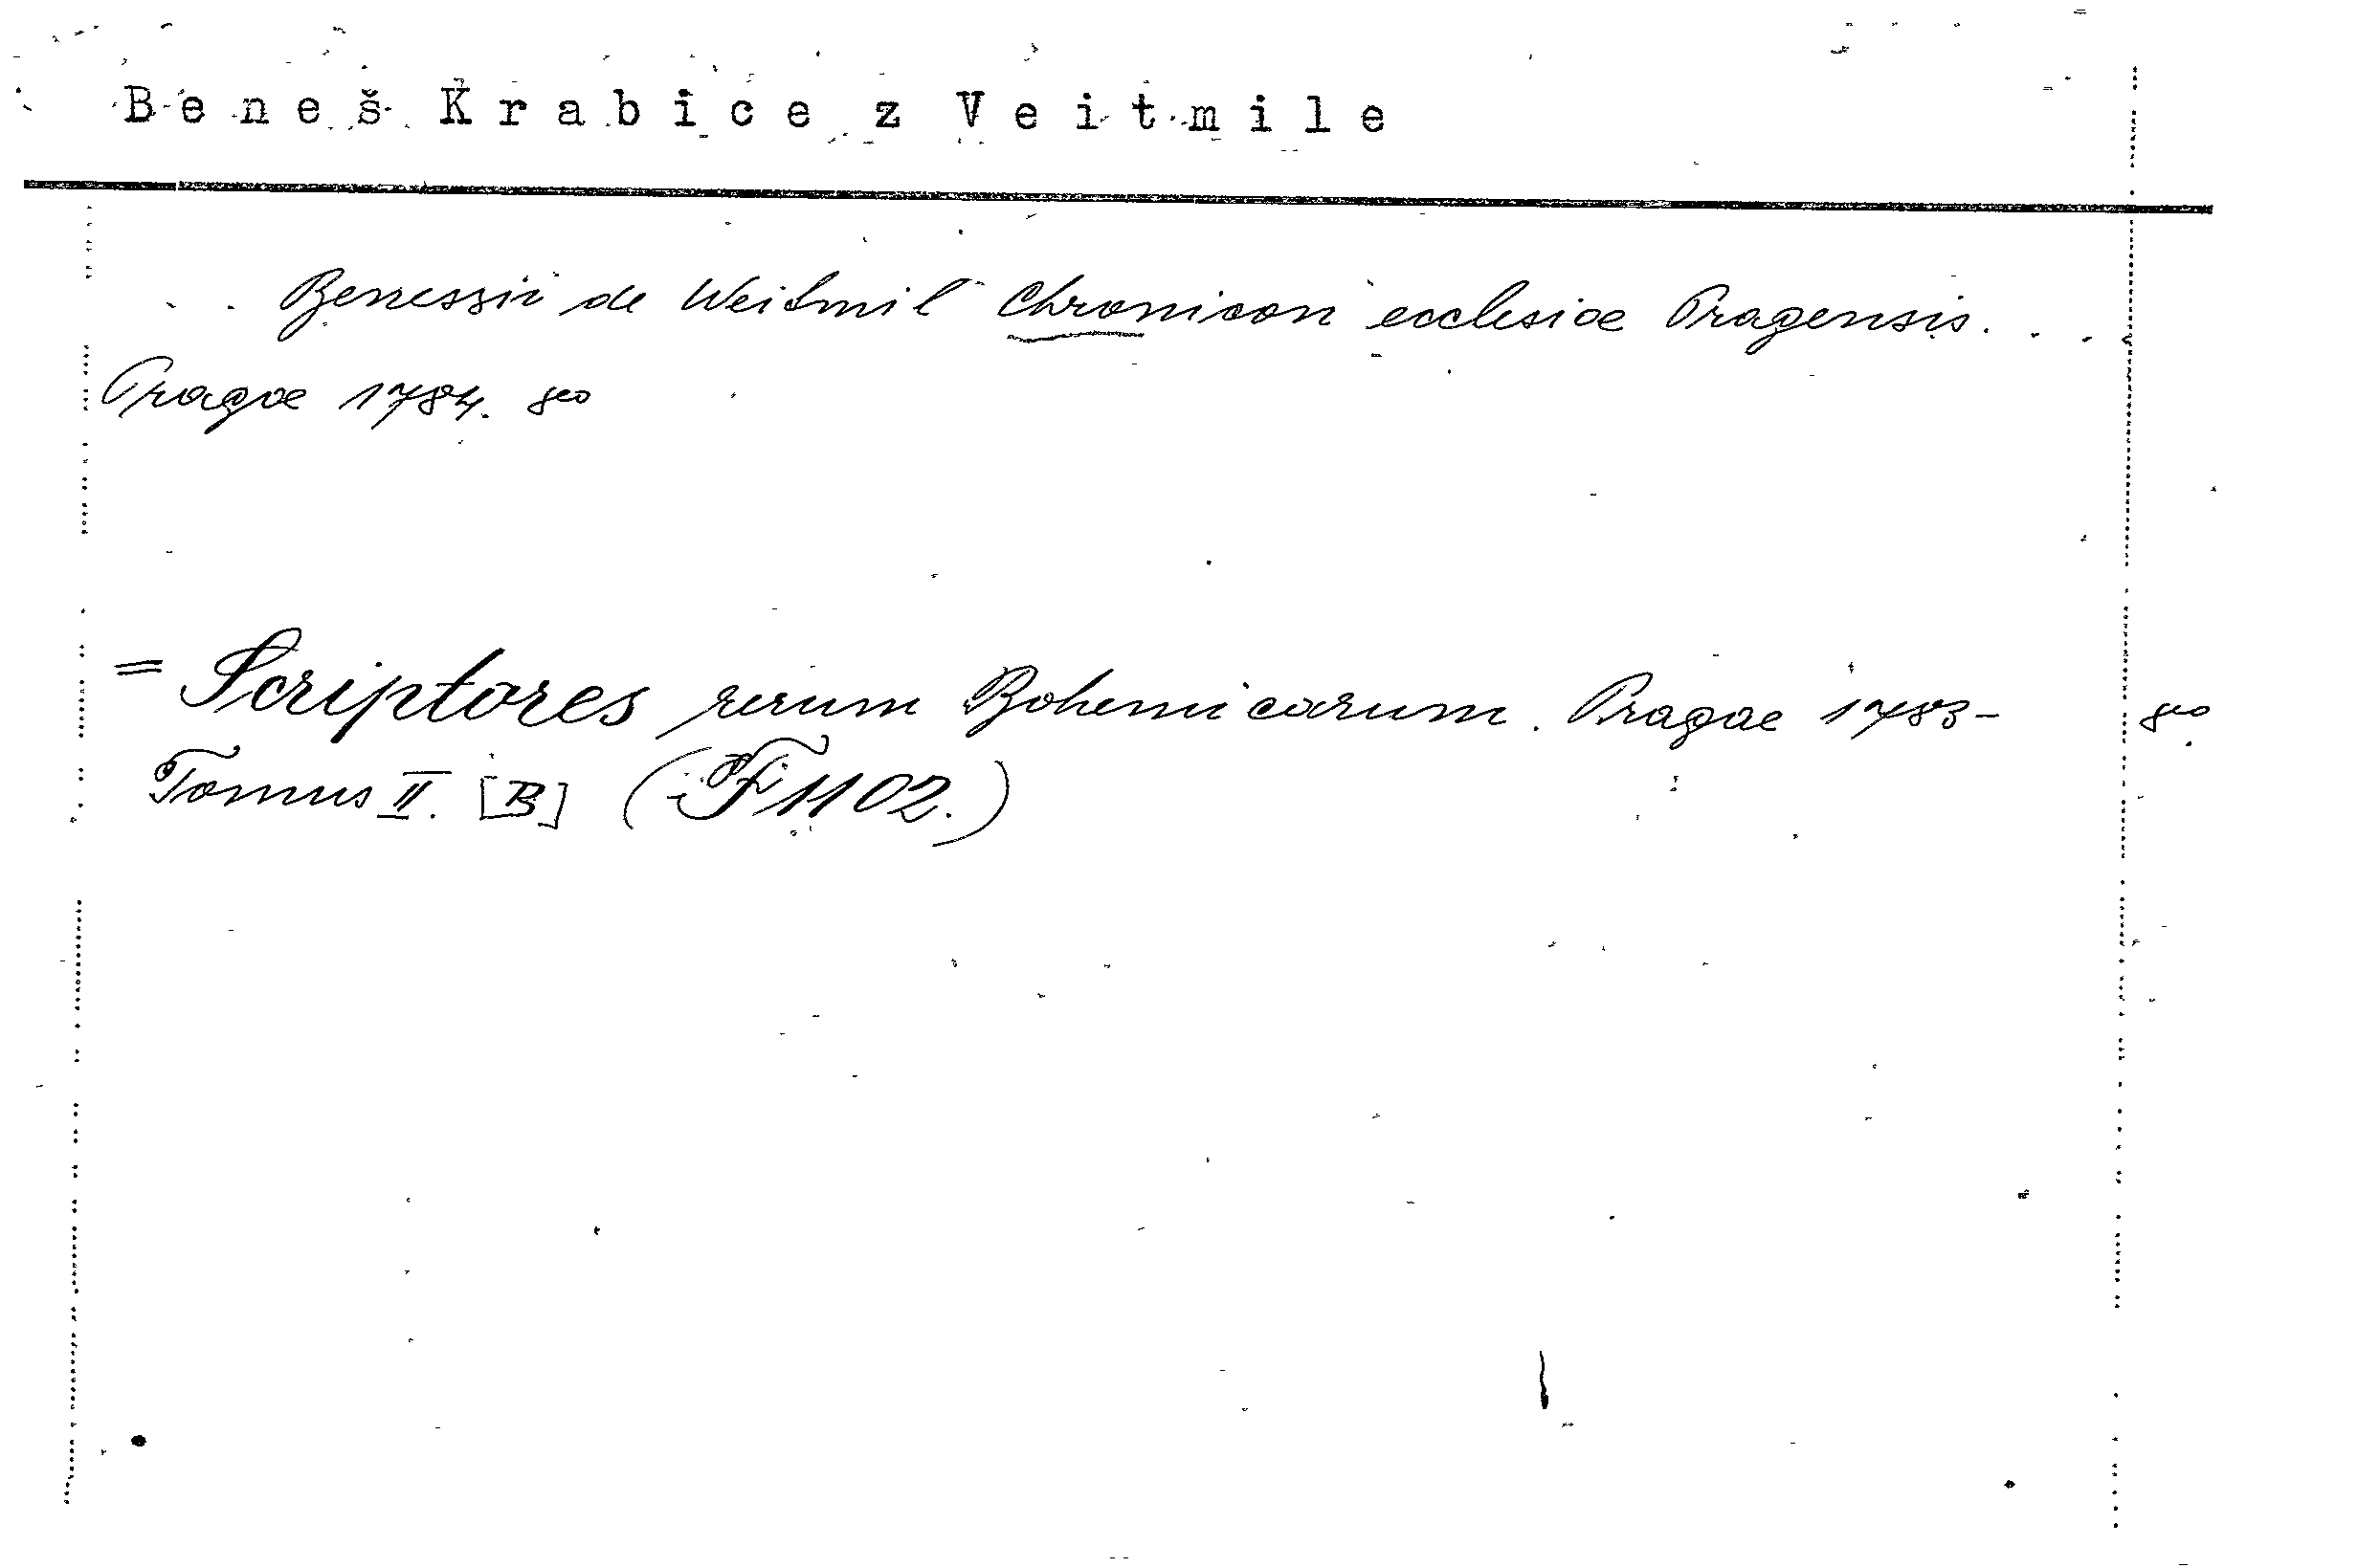 Beneš Krabice z Veitmile
Benessii de Weitmil Chronicon ecclesiae Pragensis. . . .
Pragae 1784. 8co
= Scriptores rerum Bohemicarum. Pragae 1783- 8co
Tomus II. [B] (F 1102.)